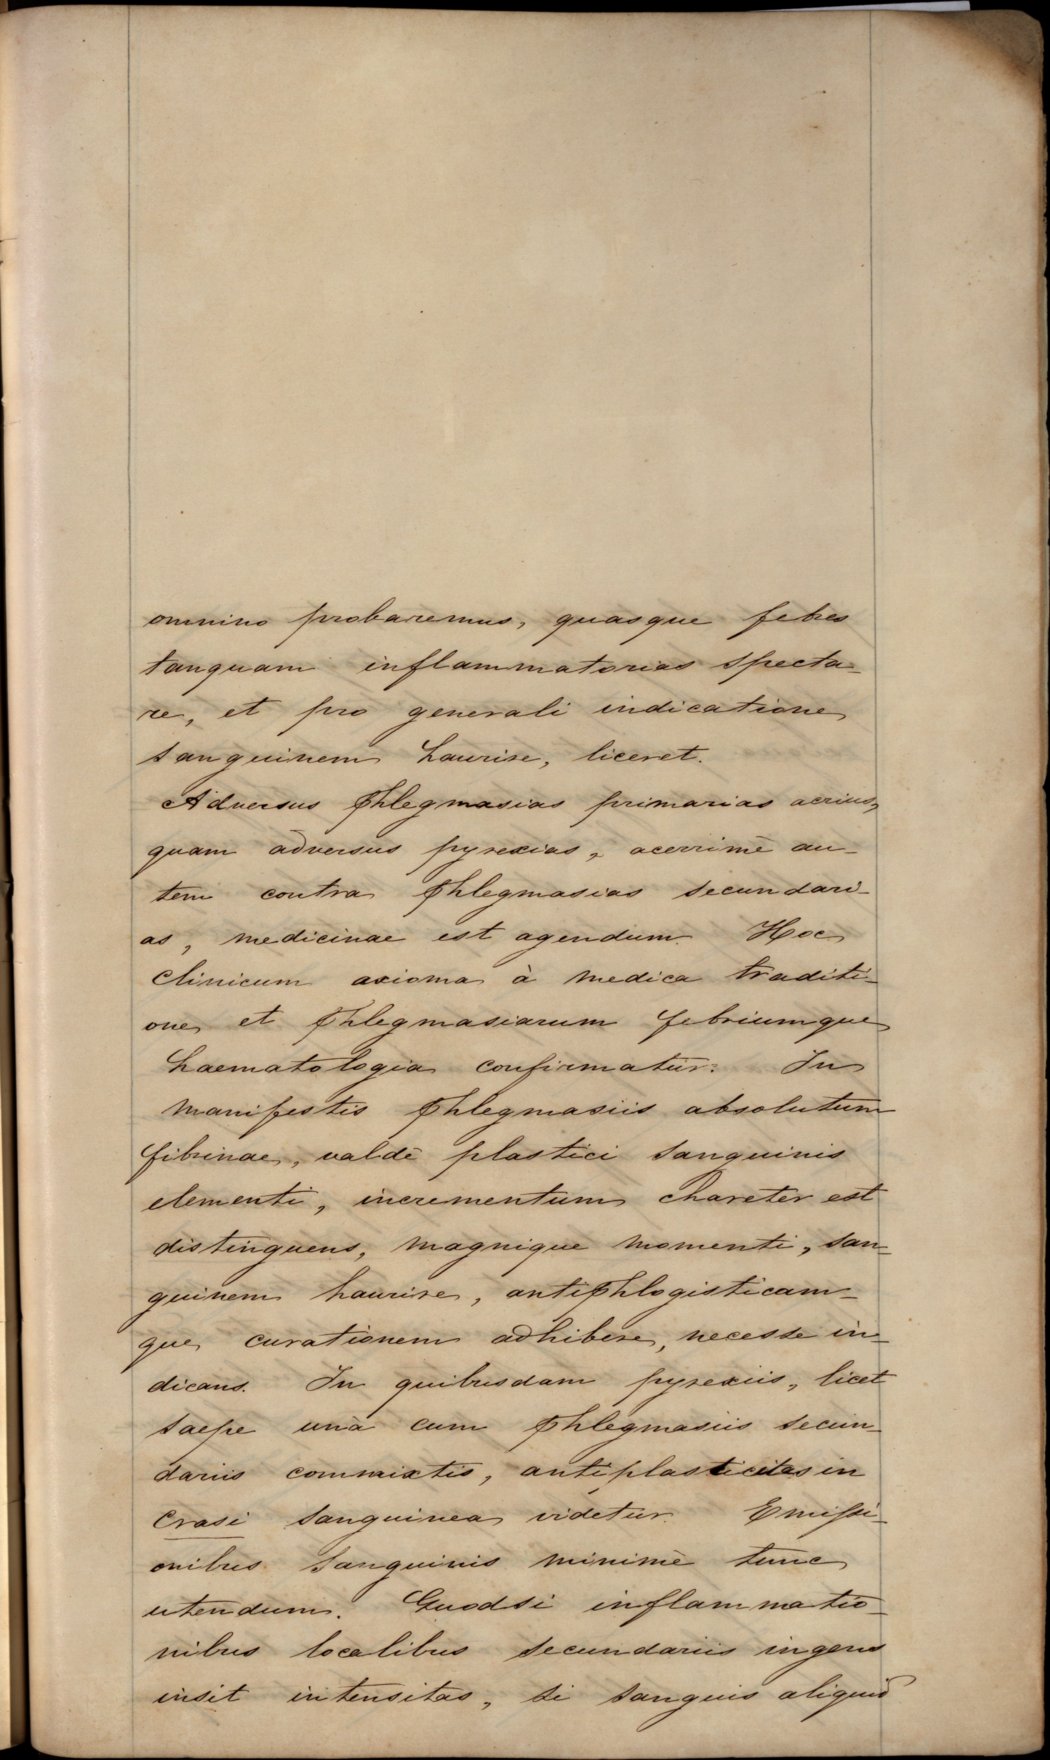 omnino probaremus, quasque febres
tanquam inflammatorias specta-
re, et pro generali indicatione
sanguinem haurire, liceret.
Adversus phlegmasias primarias acrius,
quam adversus pyrexias, acerrimè au-
tem contra phlegmasias secundari-
as, medicinae est agendum. Hoc
clinicum axioma à medica traditi-
one et phlegmasiarum febriumque
haematologia confirmatur. In
manifestis phlegmasiis absolutum
fibrinae, valdè plastici sanguinis
elementi, incrementum chareter est
distinguens, magnique momenti, san-
guinem haurire, antiphlogisticam-
que curationem adhibere, necesse in-
dicans. In quibusdam pyrexiis, licet
saepe unà cum phlegmasiis secun-
dariis commixtis, antiplasticitas in
crasi sanguinea videtur. Emissi-
onibus sanguinis minimè tunc
utendum. Quodsi inflammatio-
nibus localibus secundariis ingens
insit intensitas, si sanguis aliquid